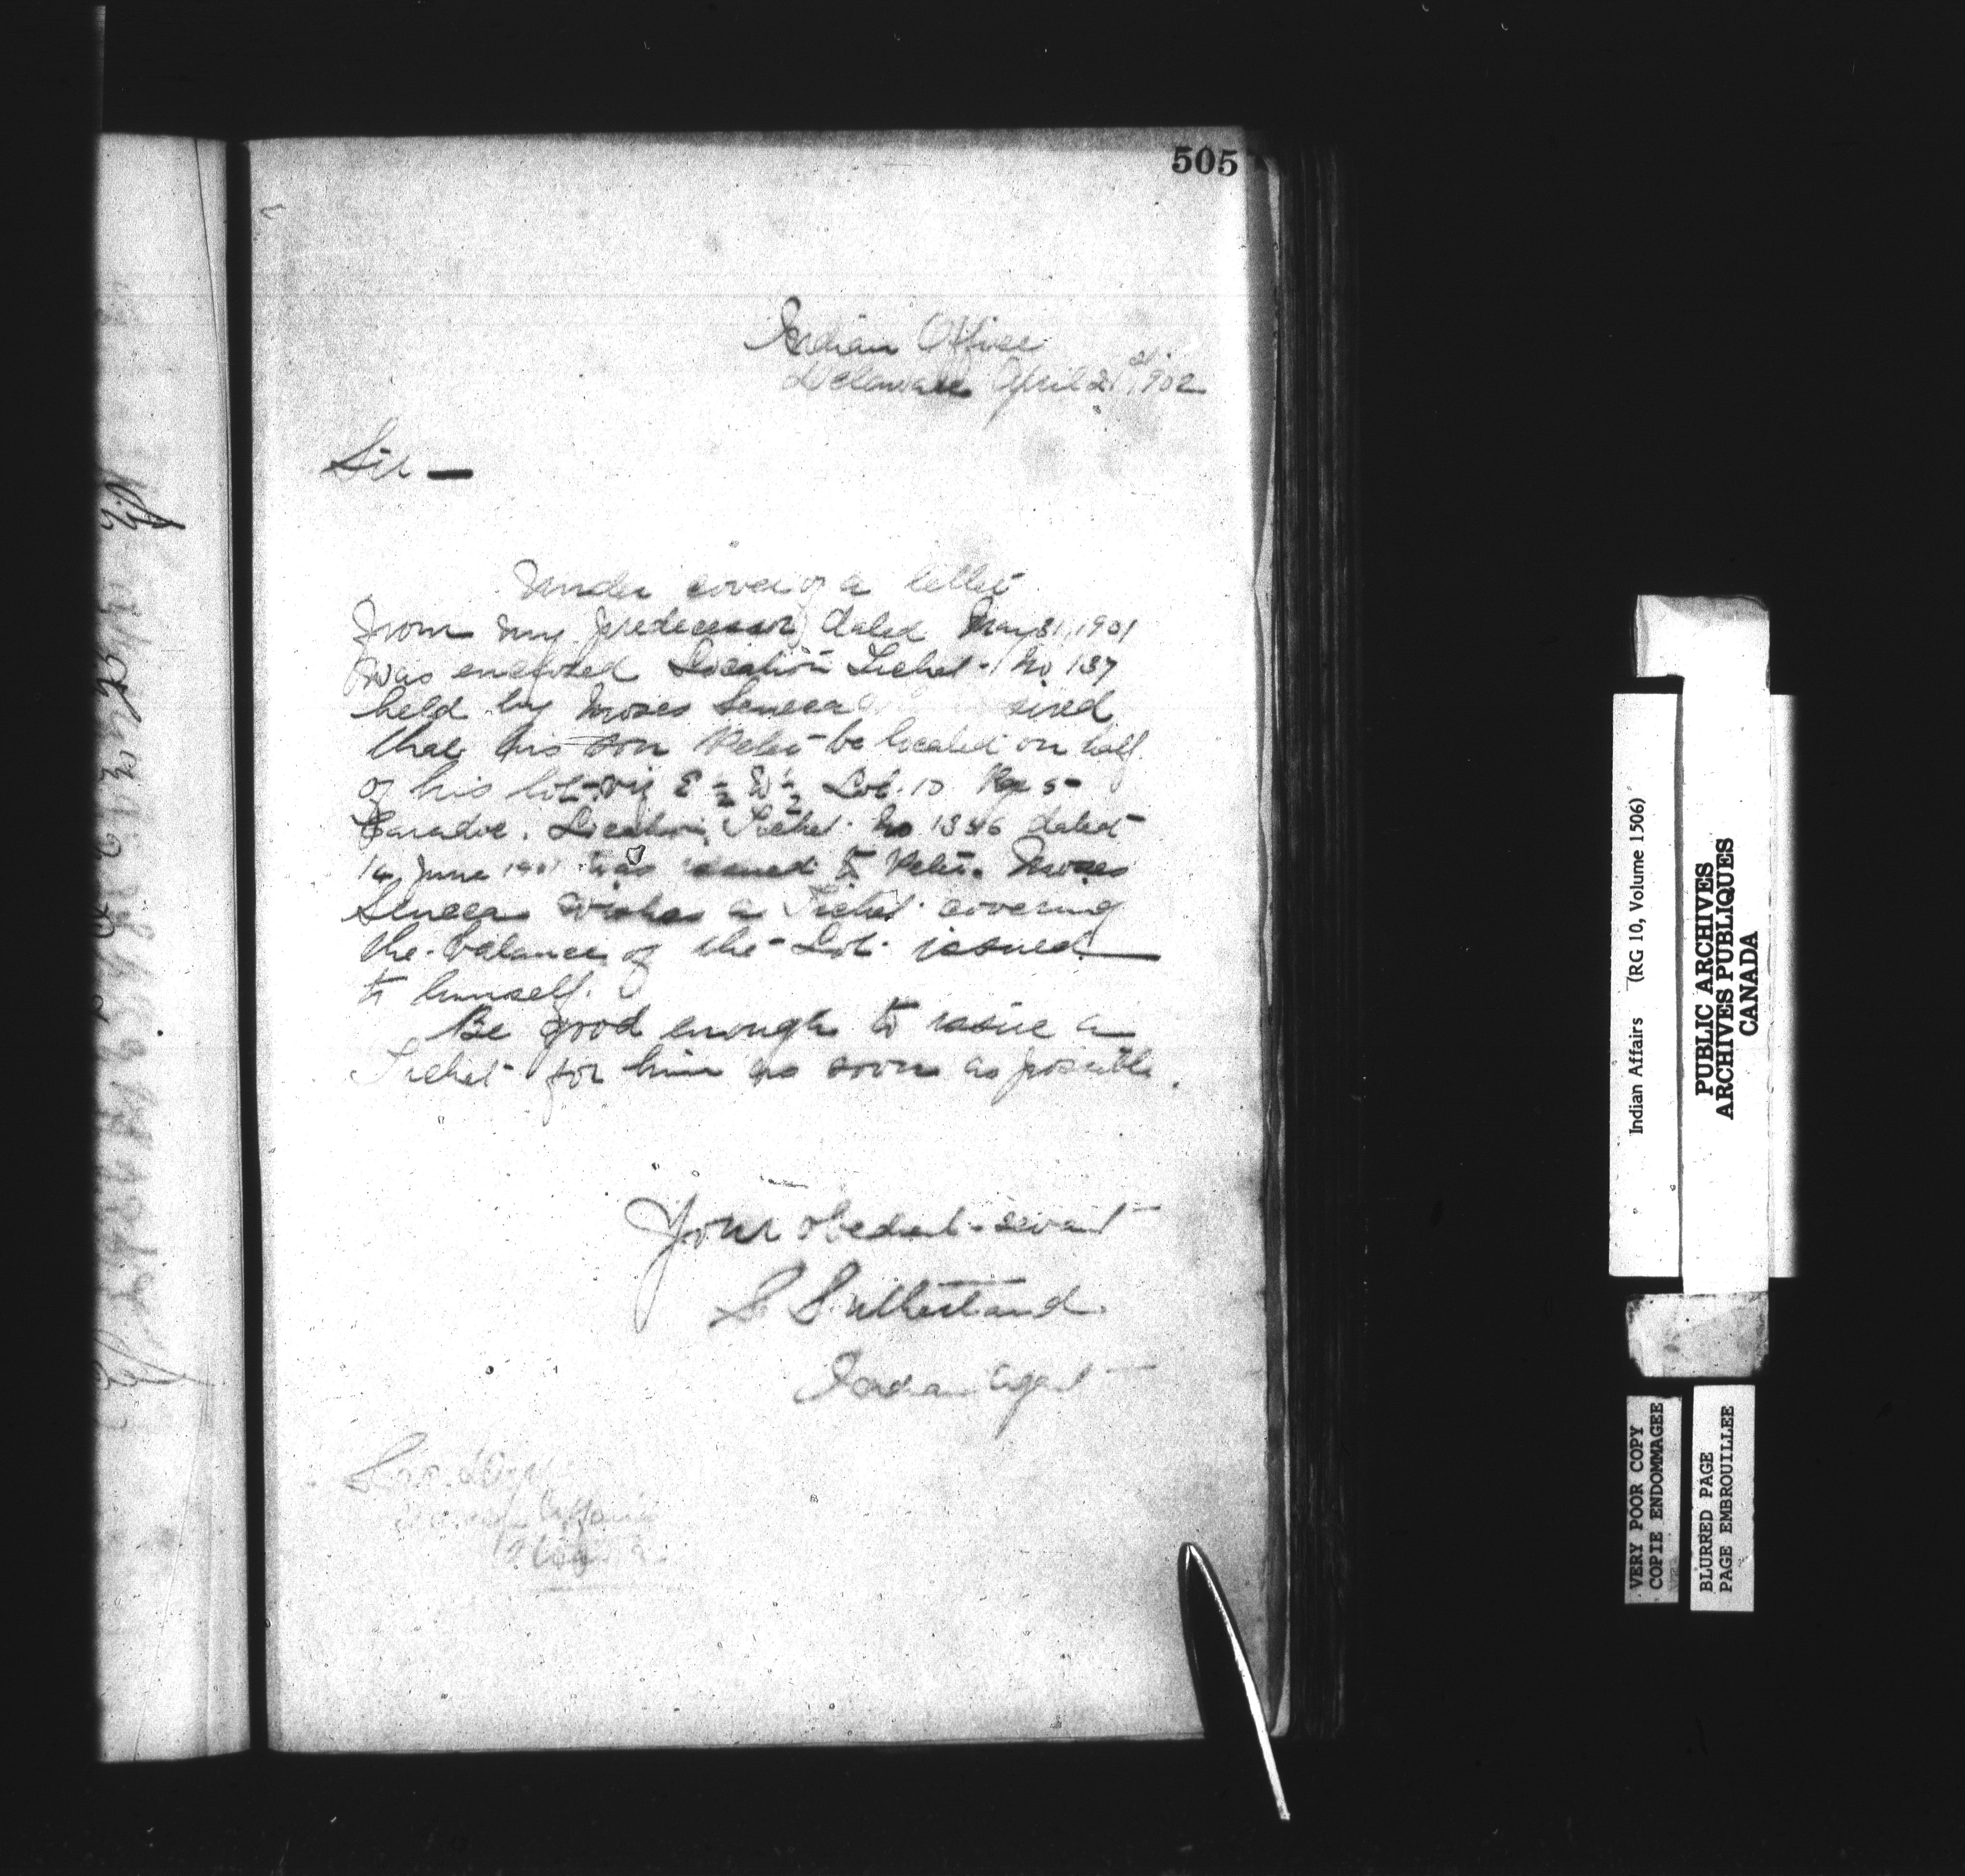 505
Indian Office
Delaware April 21st 1902
Sir —
Under cover of a letter
from my predecessor dated May 31, 1901
was enclosed Location Ticket No 137
held by Moses Seneca
that his son Peter be located on half
of his lot viz E ½ W ½ Lot 10 Rge 5
Caradoc. Location Ticket No 1346 dated
14 June 1901 was issued to Peter. Moses
Seneca wishes a Ticket covering
the balance of the Lot issued
to himself.
Be good enough to issue a
Ticket for him as soon as possible.
Your obedient servant
S Sutherland
Indian Agent
Affairs
Indian Affairs (RG 10, Volume 1506)
PUBLIC ARCHIVES
ARCHIVES PUBLIQUES
CANADA
VERY POOR COPY
COPIE ENDOMMAGEE
BLURRED PAGE
PAGE EMBROUILLEE